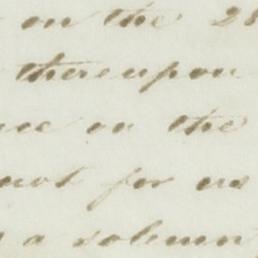 on the 28
thereupon
on the
not for us
a solemn